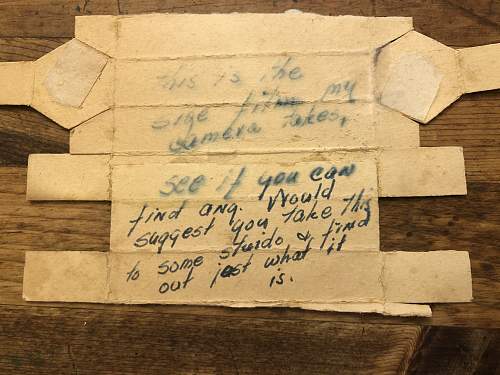 this is the
size film my
camera takes,
see if you can
find any. Would
suggest you take this
to some stuido & find
out jest what it
is.